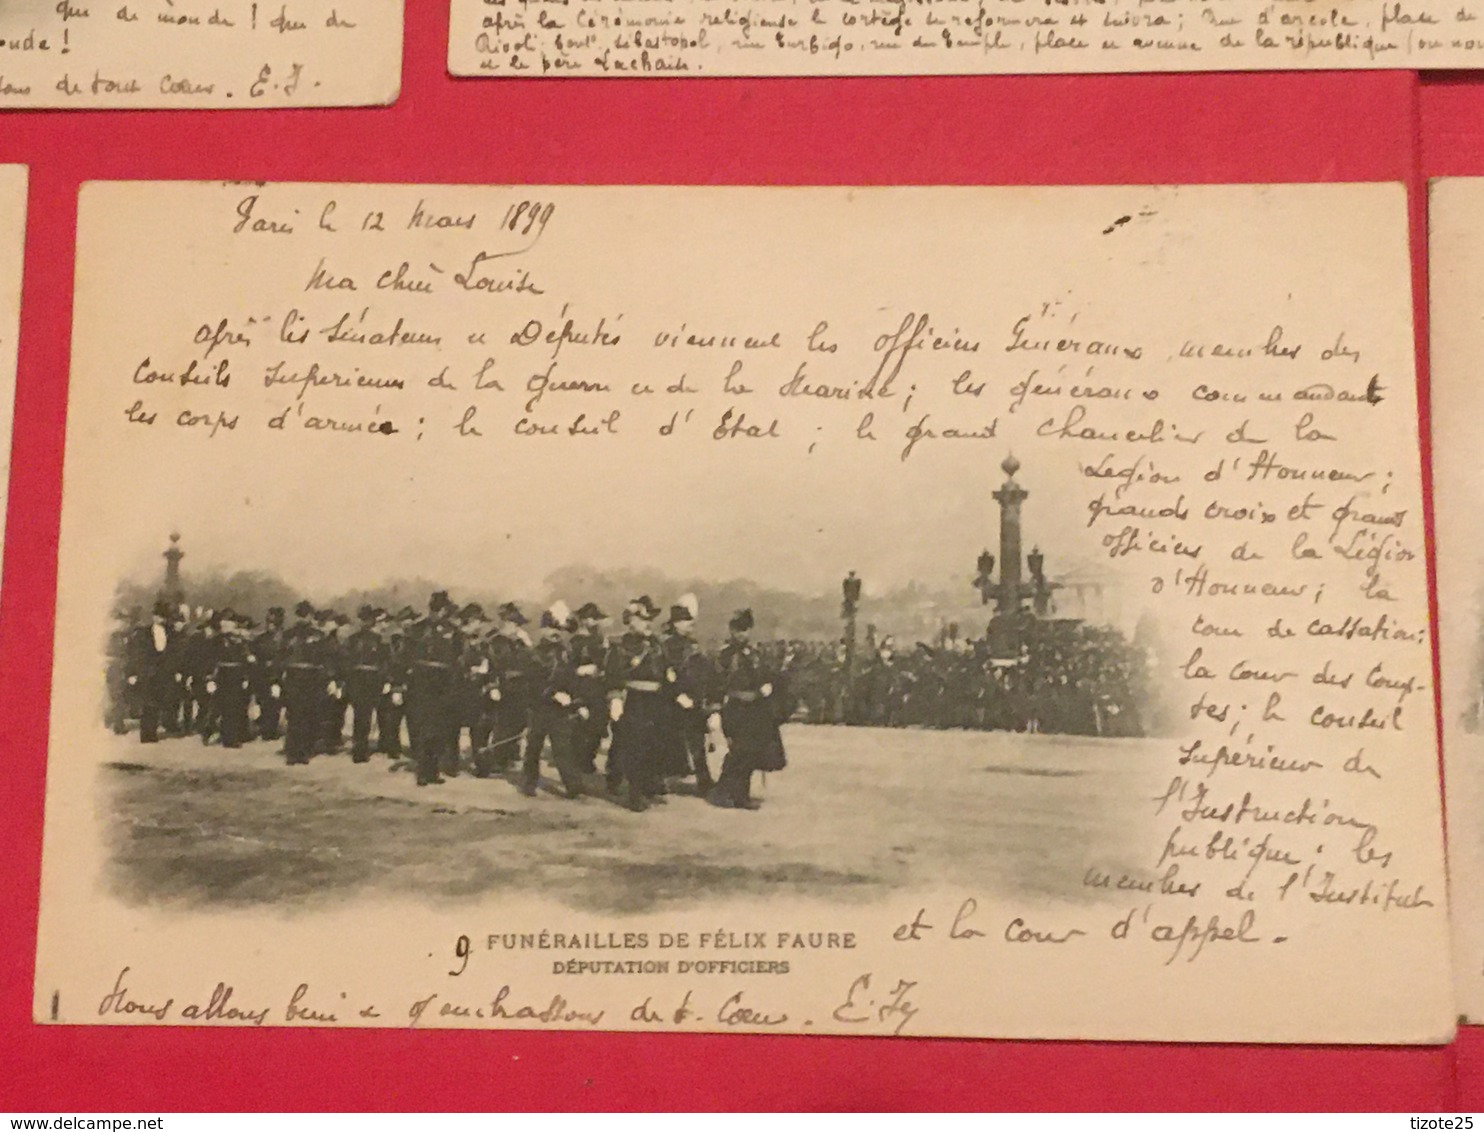 que de monde ! que de
monde !
de tout cœur. E. J.
après la Cérémonie religieuse le cortège se reformera et suivra ; rue d'arcole, place de
Rivoli, boul. Sébastopol, rue Turbigo, rue du Temple, place et avenue de la république (ou
et le père Lachaise.
Paris le 12 Mars 1899
Ma chère Louise
après les Sénateurs et Députés viennent les officiers Généraux membres des
Conseils Supérieurs de la Guerre et de la Marine ; les généraux commandant
les corps d'armée ; le conseil d'État ; le grand Chancelier de la
Légion d'Honneur ;
grands croix et grands
officiers de la Légion
d'Honneur ; la
cour de cassation ;
la cour des Comp-
tes ; le conseil
Supérieur de
l'Instruction
publique ; les
membres de l'Institut
et la cour d'appel.
9 FUNÉRAILLES DE FÉLIX FAURE
DÉPUTATION D'OFFICIERS
Nous allons bien et t'embrassons de t. Cœur.
tizote25